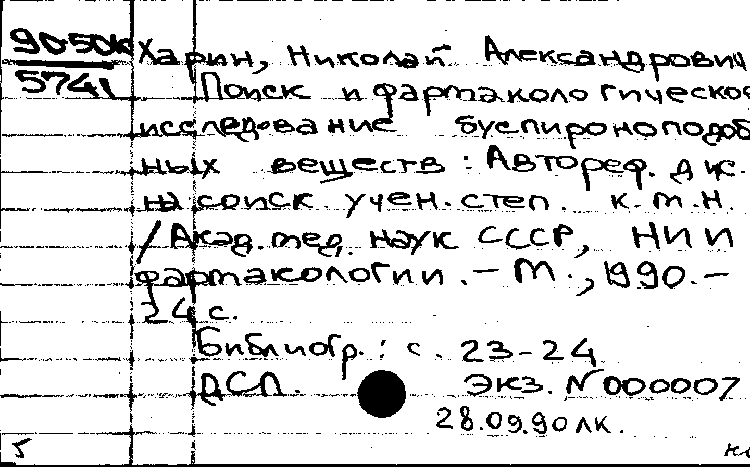 90-50к Харин, Николай Александрович
5741 Поиск и фармакологическое
исследование буспироноподоб
ных веществ : Автореф. дис.
на соиск. учен. степ. к.м.н.
/Акад. мед. наук СССР, НИИ
фармакологии. - М., 1990. -
24 с.
Библиогр.: с. 23-24
ДСП. Экз. N 000007
28.09.90 ЛК.
5